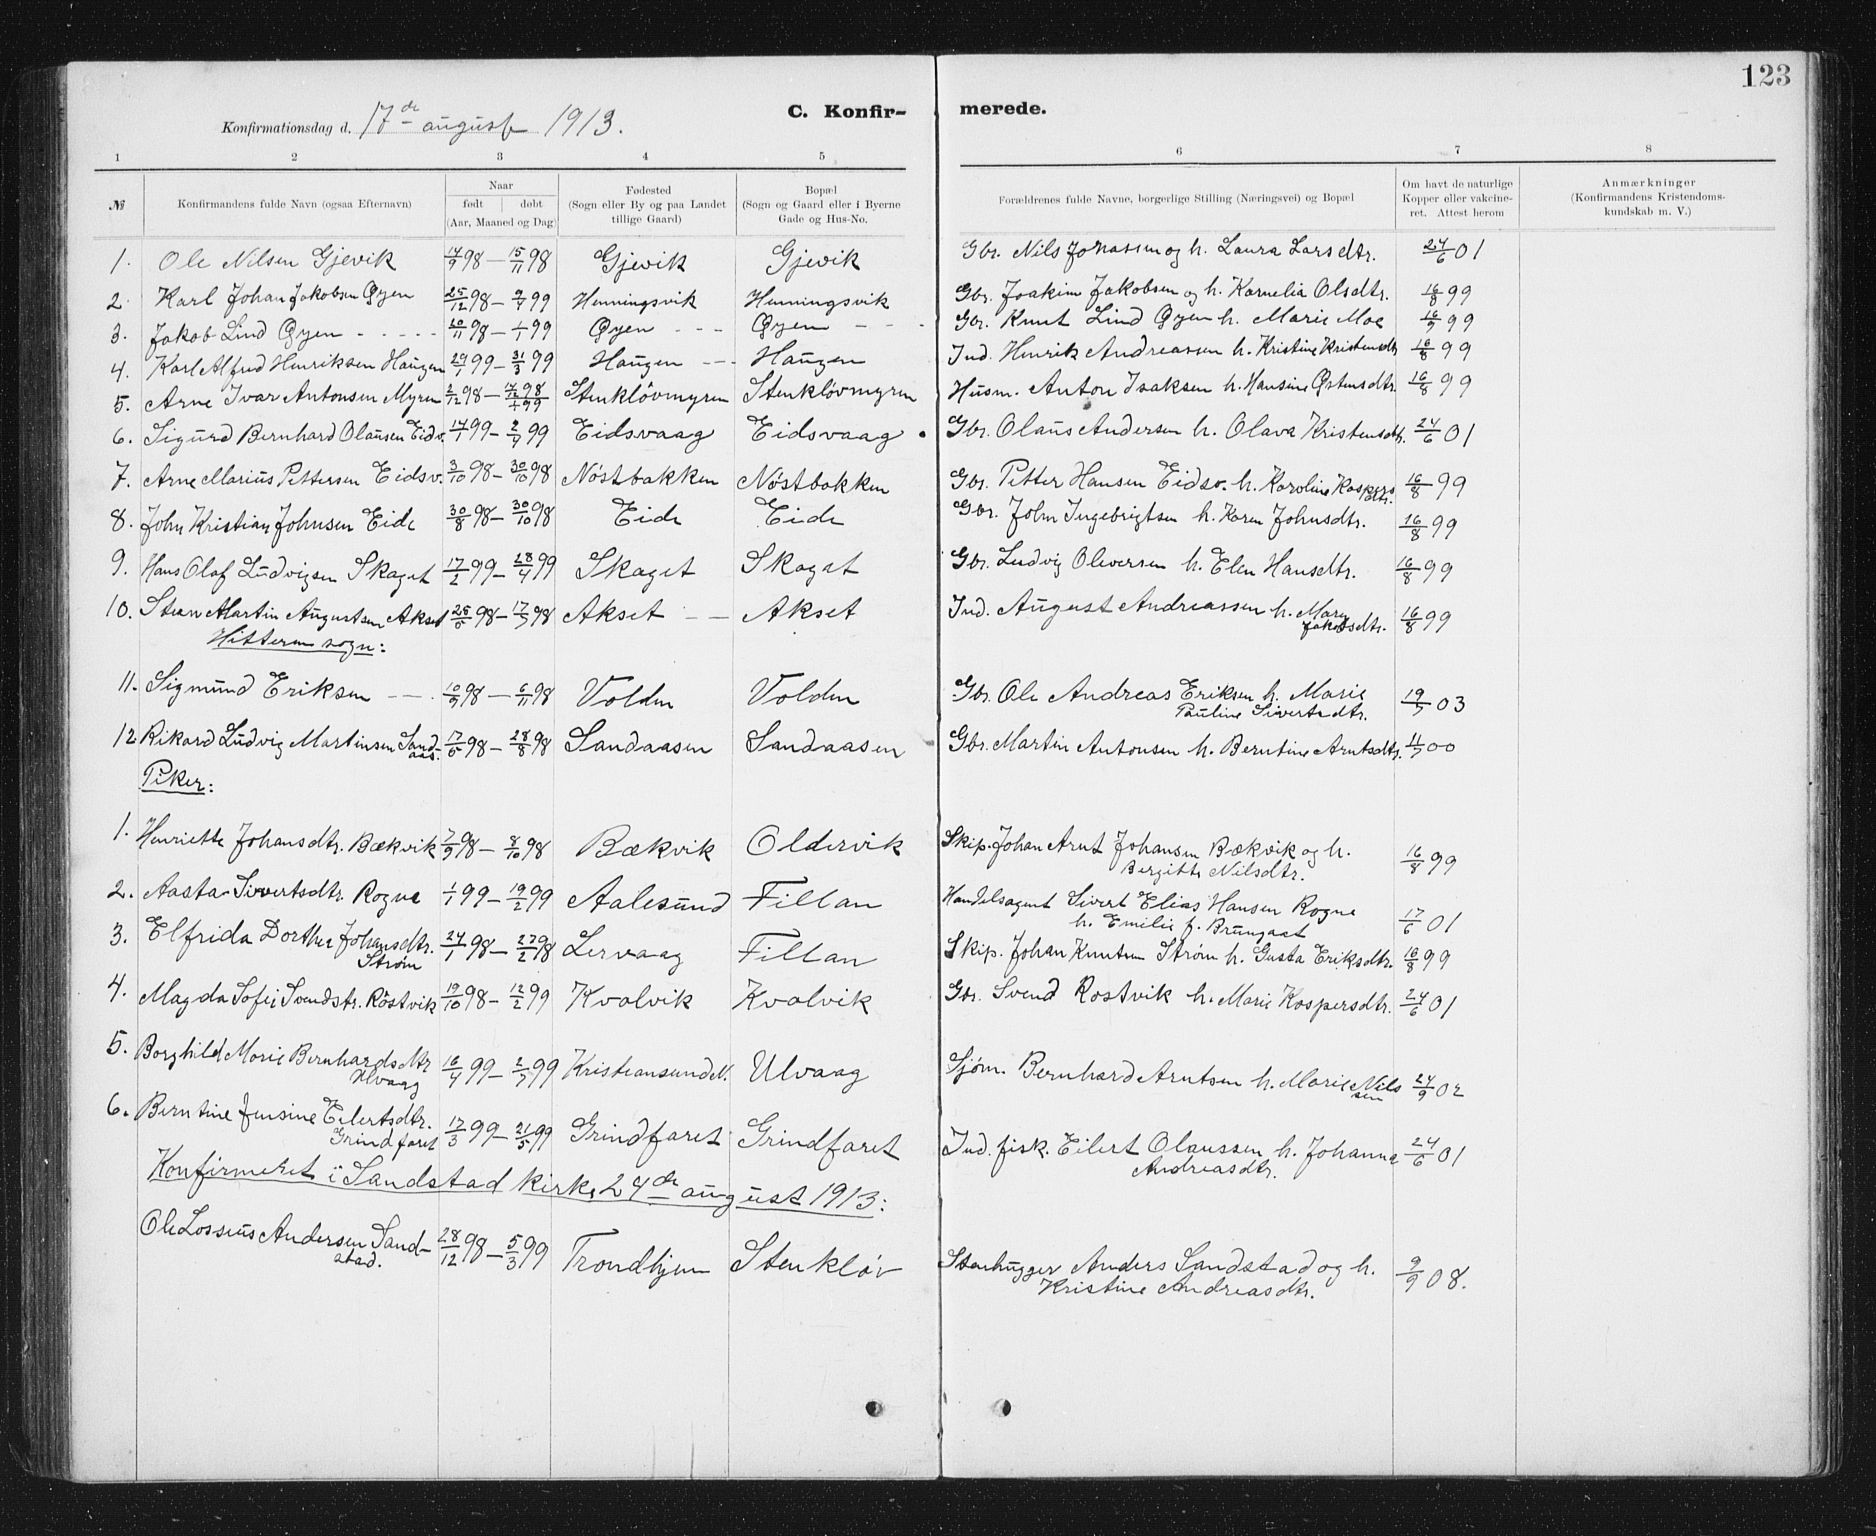 123
C. Konfirmerede.
Konfirmationsdag d. 17de august 1913.
1 2 3 4 5 6 7 8
№ Konfirmandens fulde Navn (ogsaa Efternavn) Naar født døbt (Aar, Maaned og Dag) Fødested (Sogn eller By og paa Landet tillige Gaard) Bopæl (Sogn og Gaard eller i Byerne Gade og Hus-No.) Forældrenes fulde Navne, borgerlige Stilling (Næringsvei) og Bopæl Om havt de naturlige Kopper eller vakcineret. Attest herom Anmærkninger (Konfirmandens Kristendomskundskab m. V.)
1. Ole Nilsen Gjevik 14/9 98 — 15/11 98 Gjevik Gjevik Gbr. Nils Johassen og h. Laura Larsdtr. 24/6 01
2. Karl Johan Jakobsen Øyen 25/12 98 — 9/4 99 Henningsvik Henningsvik Gbr. Joakim Jakobsen og h. Kornelia Olsdtr. 16/8 99
3. Jakob Lind Øyen 20/11 98 — 1/1 99 Øyen Øyen Gbr. Knut Lind Øyen h. Marie Moe 16/9 99
4. Karl Alfred Henriksen Haugen 29/1 99 — 31/3 99 Haugen Haugen Ind. Henrik Andreassen h. Kristine Kristensdtr 16/8 99
5. Arne Ivar Antonsen Myren 2/12 98 — 98 1/1 99 Stenkløvmyren Stenkløvmyren Husm. Anton Isaksen h. Hansine Østensdtr. 16/8 99
6. Sigurd Bernhard Olausen Eidsv. 14/1 99 — 2/4 99 Eidsvaag Eidsvaag Gbr. Olaus Andersen h. Olava Kristensdtr. 24/6 01
7. Arne Marius Pettersen Eidsv. 3/10 98 — 30/10 98 Nøstbakken Nøstbakken Gbr. Petter Hansen Eidsv. h. Karoline Kaspersdtr. 16/8 99
8. John Kristian Johnsen Eide 30/8 98 — 30/10 98 Eide Eide Gbr. John Ingebrigtsen h. Karen Johnsdtr. 16/8 99
9. Hans Olaf Ludvigsen Skaget 17/2 99 — 28/4 99 Skaget Skaget Gbr. Ludvig Oliversen h. Elen Hansdtr. 16/8 99
10. Martin Augustsen Akset 25/5 98 — 17/7 98 Akset Akset Ind. August Andreassen h. Mary Jakobsdtr. 16/8 99
Hitteren sogn:
11. Sigmund Eriksen 10/9 98 — 6/11 98 Volden Volden Gbr. Ole Andreas Eriksen h. Marie
Pauline Sivertsdtr. 19/7 03
12. Rikard Ludvig Martinsen Sandaas. 17/5 98 — 28/8 98 Sandaasen Sandaasen Gbr. Martin Antonsen h. Berntine Arntsdtr. 11/7 00
Piker:
1. Henriette Johansdtr. Bækvik 7/9 98 — 8/10 98 Bækvik Oldervik Skip. Johan Arnt Johansen Bækvik og h.
Bergitte Nilsdtr. 16/8 99
2. Aasta Sivertsdtr. Rogne 1/1 99 — 19/2 99 Aalesund Fillan Handelsagent Sivert Elias Hansen Rogne
h. Emilie f. Brungast 17/6 01
3. Elfrida Dorthea Johansdtr.
Strøm 24/1 98 — 27/2 98 Lervaag Fillan Skip. Johan Knutsen Strøm h. Gusta Eriksdtr. 16/8 99
4. Magda Sofie Svendstr. Røstvik 19/10 98 — 12/2 99 Kvalvik Kvalvik Gbr. Svend Rostvik h. Marie Kaspersdtr. 24/6 01
5. Borghild Marie Bernhardsdtr
Ulvaag 16/4 99 — 2/7 99 Kristiansund N. Ulvaag Sjøm. Bernhard Arntsen h. Marie Nilssen 24/9 02
6. Berntine Jensine Eilertsdtr.
Grindfaret 17/3 99 — 21/5 99 Grindfaret Grindfaret Ind. fisk. Eilert Olaussen h. Johanna
Andreasdtr. 24/6 01
Konfirmeret i Sandstad kirke 24de august 1913:
Ole Lossius Andersen Sandstad. 28/12 98 — 5/3 99 Trondhjem Stenkløv Stenhugger Anders Sandstad og h.
Kristine Andreasdtr. 9/9 08.